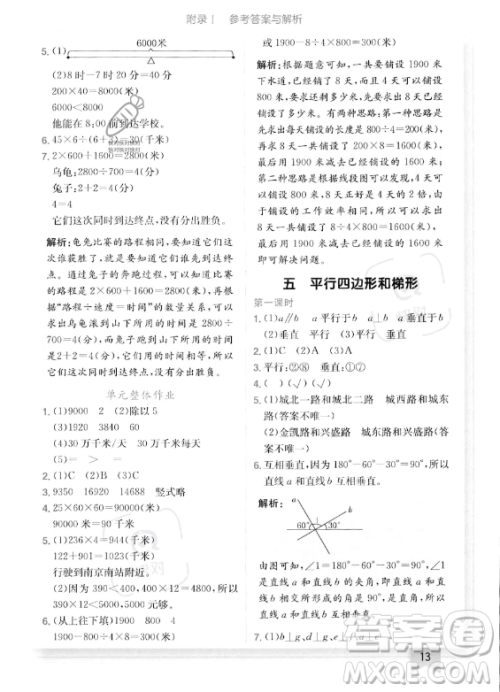 附录Ⅰ 参考答案与解析
6000米
5. (1)
(2)8时-7时20分=40分
200×40=8000(米)
6000<8000
他能在8:00前到达学校。
6. 45×6÷(6+3)=30(千米)
7. 2×600+1600=2800(米)
乌龟:2800÷700=4(分)
兔子:2+2=4(分)
4=4
它们这次同时到达终点,没有分出胜负。
解析:龟兔比赛的路程相同,要知道它们这
次谁获胜了,就是要知道它们谁用的时间
短。知道兔子的奔跑过程,可以知道它们比
赛的路程是2×600+1600=2800(米),再根
据“路程÷速度=时间”,可以知道这次比赛
由乌龟滚到山下所用的时间是2800÷700=
4(分),兔子跑到山下所用的时间是
2+2=4(分)。它们这次比赛所用的时间相
同,同时到达终点,没有分出胜负。
单元整体作业
1. (1)9000 2 (2)除以5
(3)1920 3840
(4)30万千米/秒 30万千米/天
2. (1)C (2)B (3)C
3. 9350 16920 14958 竖式略
4. 25×60×60=90000(米)
90000米=90千米
5. (1)236×4=944(千米)
122+901=1023(千米)
行驶到南京南站附近。
(2)不能。390<400,400×12=4800
即390×12<4800。
6. (从上往下填)1900 800
1900-800÷4×8=300(米)
或1900-8÷4×800=300(米)
解析:根据题意可知,一共要铺设1900米
下水道,已经铺了8天,已知4天可以铺设
800米,要求还剩多少米。第一种思路是
求出平均每天铺设多少米,再求出8天铺
设多少米,就可以知道还剩多少米没铺设。
第二种思路是根据线段图可以知道,4天
铺设800米,8天是4天的2倍,由于铺
设的工作效率相同,所以8天可以铺设
1600米,用1900米减去1600米即
可解决问题。
五 平行四边形和梯形
第一课时
1. (1)a平行于b a∥b a垂直于b
(2)垂直 平行 垂直
2. (1)A (2)C (3)C
3. 平行:②⑧ 垂直:④⑥
4. ( )(√)(√)( )
5. (1)城北一路和城北二路 城西路和城东
路(答案不唯一)
(2)金凯路和兴盛路 城东路和兴盛路
(答案不唯一)
6. 互相垂直,因为180°-30°-60°=90°,所以
直线a和直线b互相垂直。
解析:
60° 1 30°
由图可知,∠1=180°-60°-30°=90°,∠1
是直线a和直线b的夹角,即直线a和
直线b相交所形成的角是直角,所以直线a
和直线b互相垂直。
13